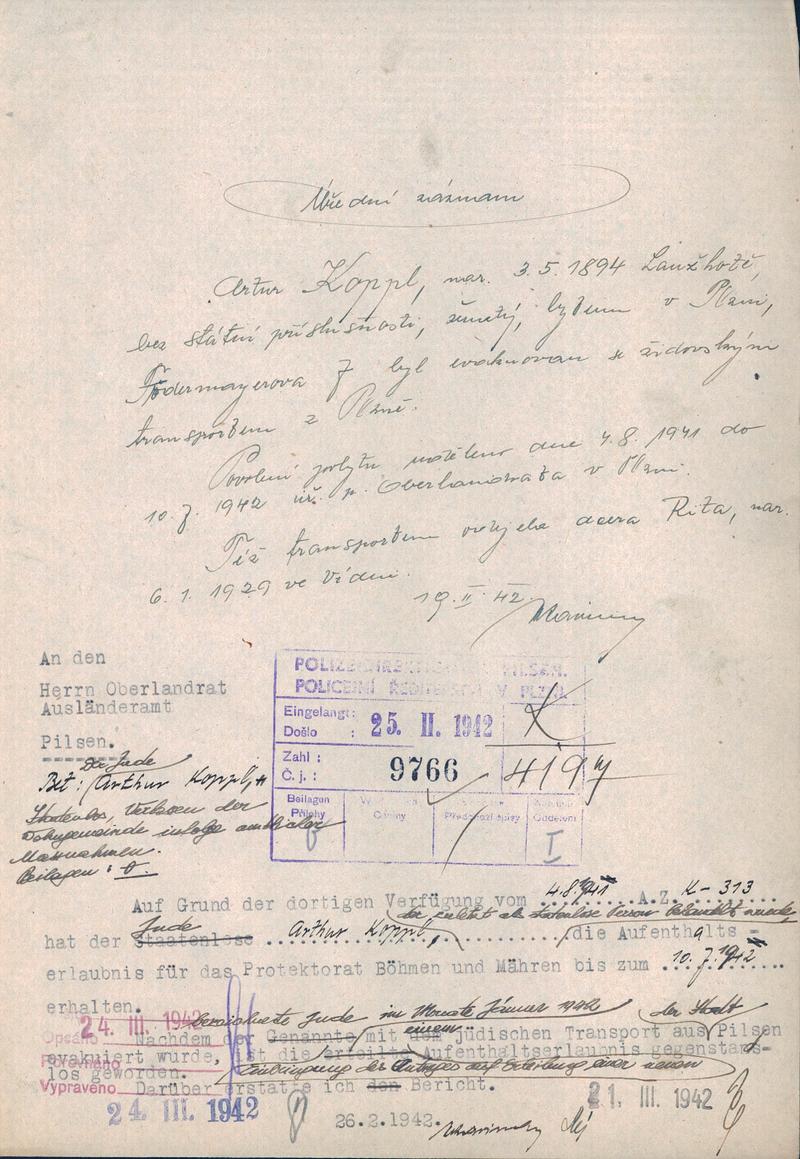 Úřední záznam
Artur Koppl, nar. 3.5.1894 Lanžhotě,
bez státní příslušnosti, ženatý, bytem v Plzni,
Födermayerova 7 byl evakuovan se židovským
transportem z Plzně.
Povolení pobytu uděleno dne 4.8.1941 do
10.7.1942 Oberlandrata v Plzni.
Též transportem odjela dcera Rita, nar.
6.1.1929 ve Vídni.
19.II.42.
An den
Herrn Oberlandrat
Ausländeramt
Pilsen.
POLIZEIDIREKTION IN PILSEN.
POLICEJNÍ ŘEDITELSTVÍ V PLZNI.
Eingelangt: 25. II. 1942
Došlo :
Zahl :
Č. j.: 9766
K
4197
Beilagen
Přílohy
Oddělení
I
Der Jude
Bet: Arthur Koppl,
Staatenlos, Verlassen der
Wohngemeinde infolge amtlicher
Massnahmen.
Beilagen: 0.
Auf Grund der dortigen Verfügung vom 4.8.1941 A.Z. K-313
der zuletzt als staatenlose Person behandelt wurde
Jude
hat der Staatenlose Arthur Koppl, die Aufenthalts-
erlaubnis für das Protektorat Böhmen und Mähren bis zum 10.7.1942
erhalten.
24. III. 1942
bezeichnete Jude im Monate Jänner 1942 der Stadt
Opsáno Nachdem der Genannte mit dem einem jüdischen Transport aus Pilsen
Porovnáno evakuiert wurde, ist die erteilte Aufenthaltserlaubnis gegenstands-
los geworden.
Einbringung des Antrages auf Erteilung einer neuen
Vypraveno Darüber erstatte ich den Bericht.
24 III. 1942
26.2.1942.
21. III. 1942